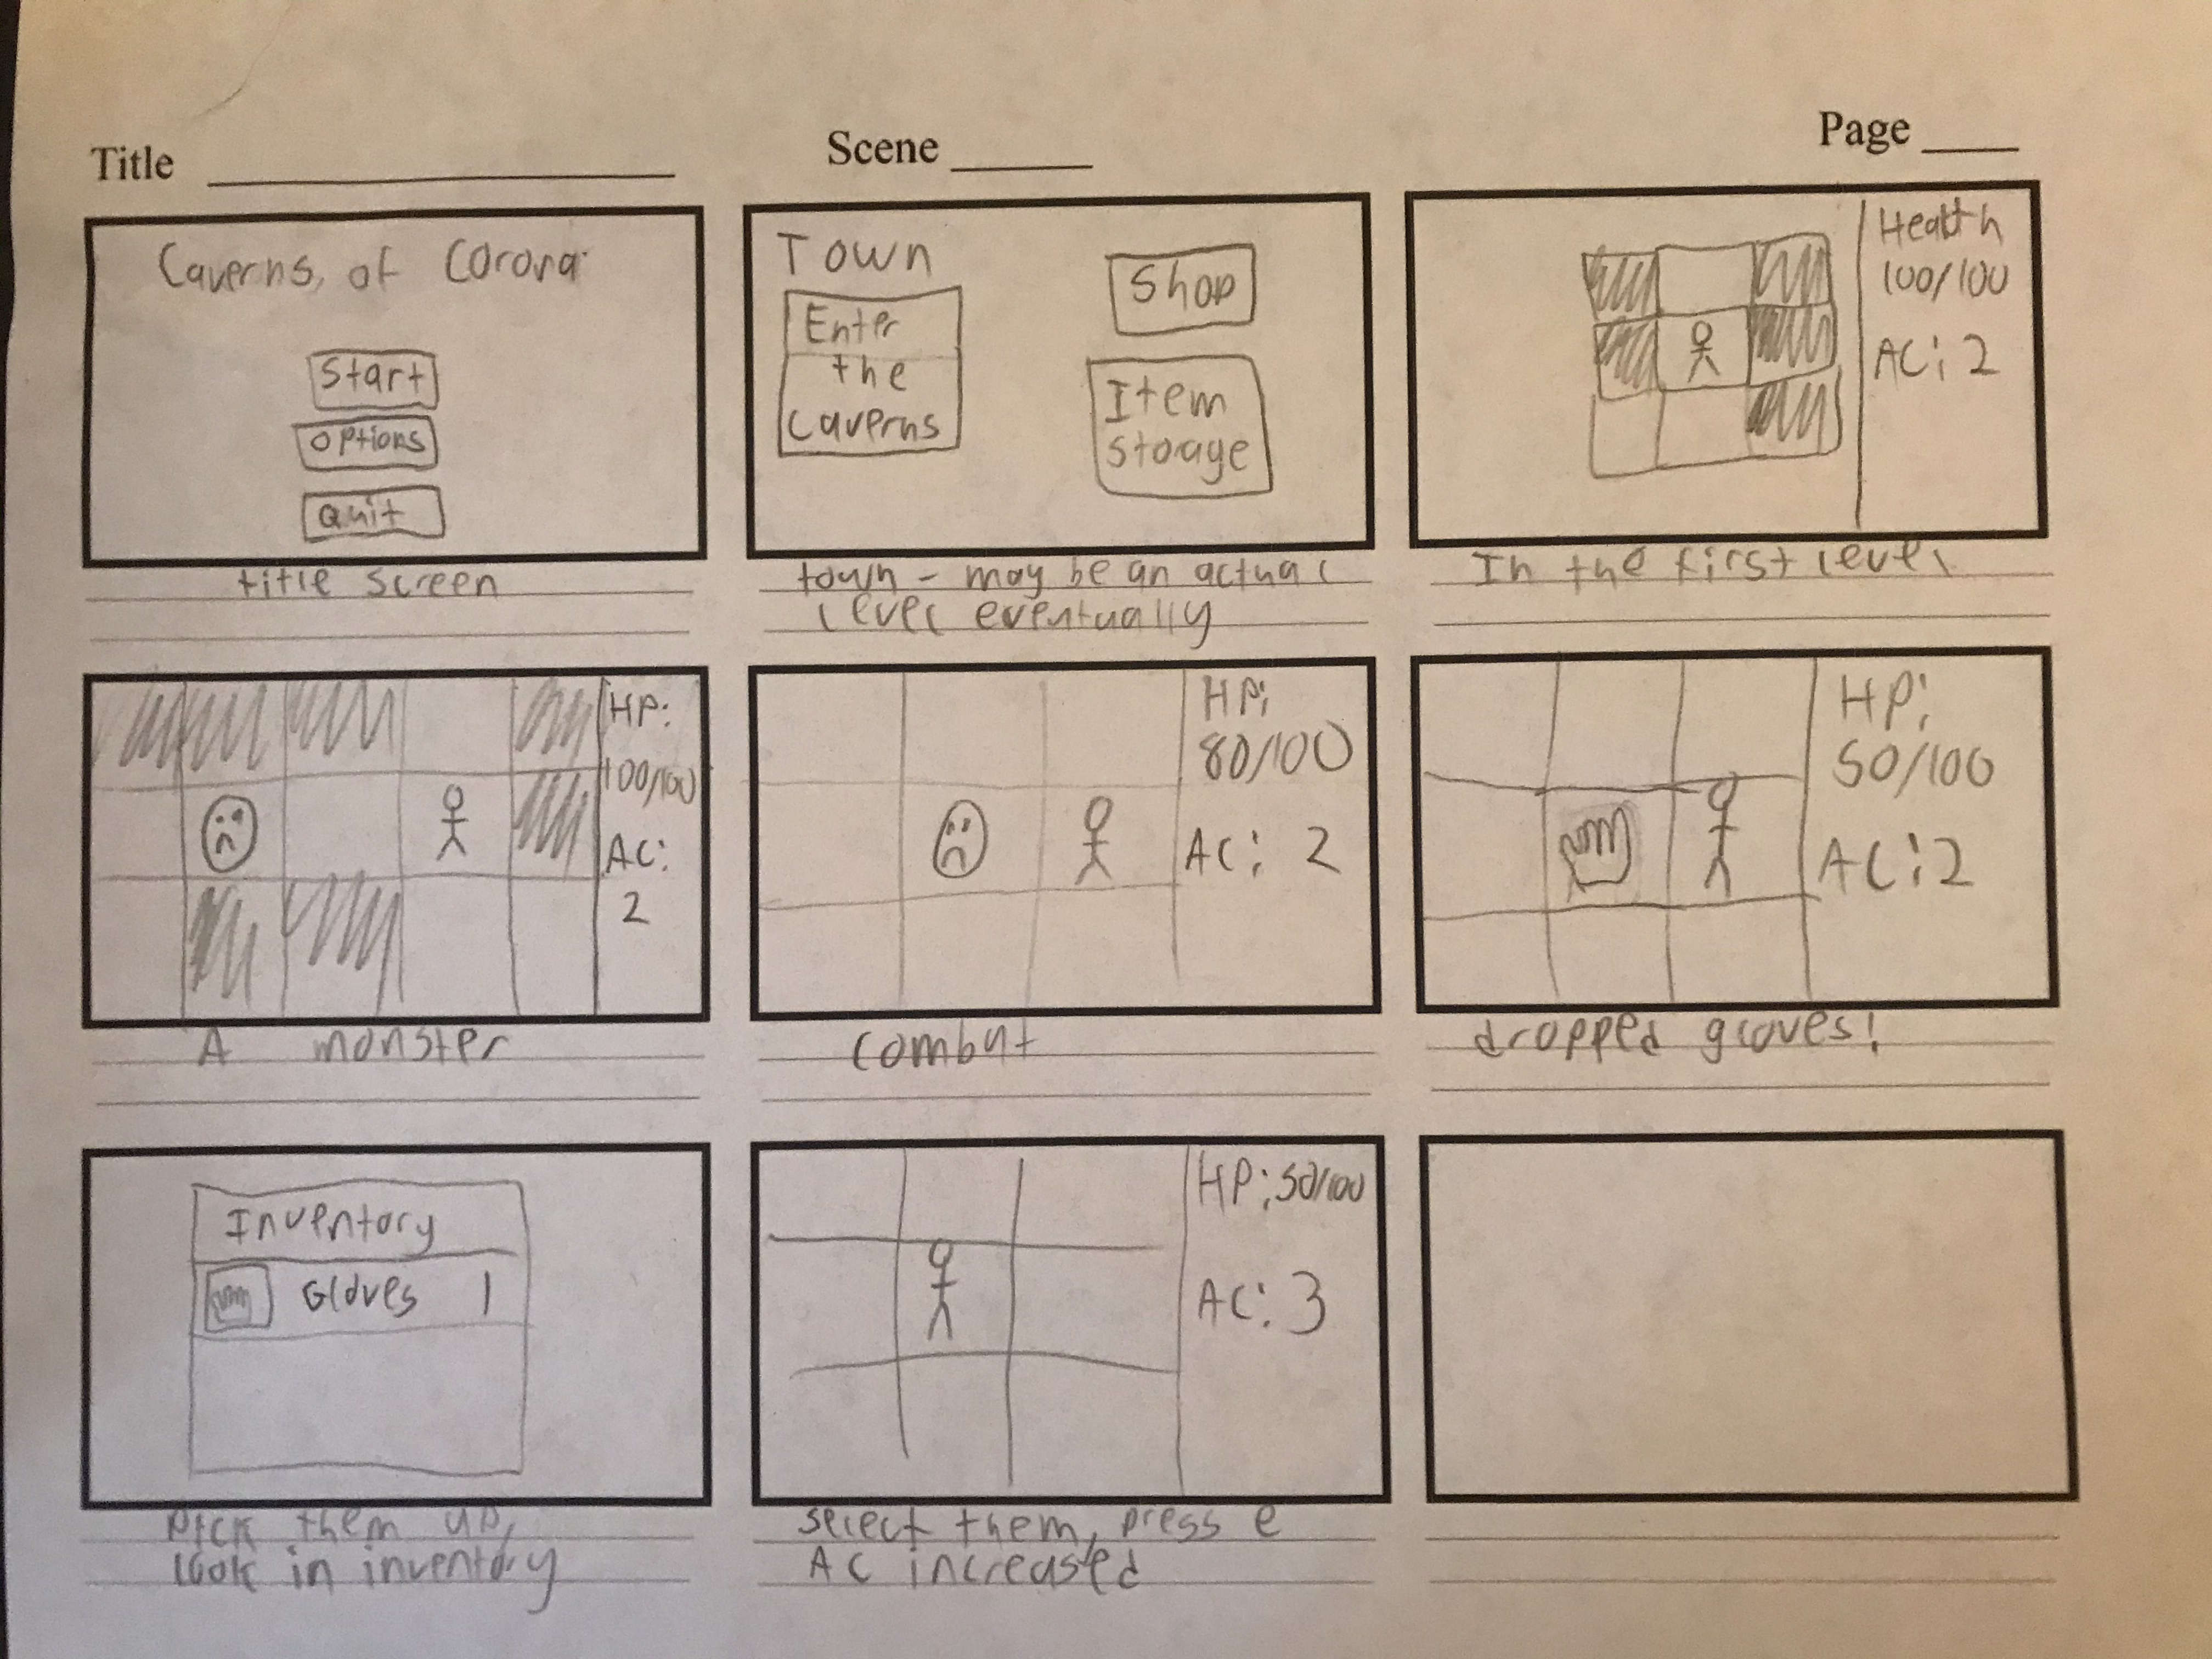 Title
Scene
Page
Caverns of Corona
Start
options
Quit
title screen
Town
Enter
the
Caverns
Shop
Item
storage
town - may be an actual
level eventually
Health
100/100
AC: 2
In the first level
HP:
100/100
AC:
2
A monster
HP:
80/100
AC: 2
combat
HP:
50/100
AC: 2
dropped gloves!
Inventory
Gloves 1
Pick them up,
look in inventory
HP: 50/100
AC: 3
select them, press e
AC increased